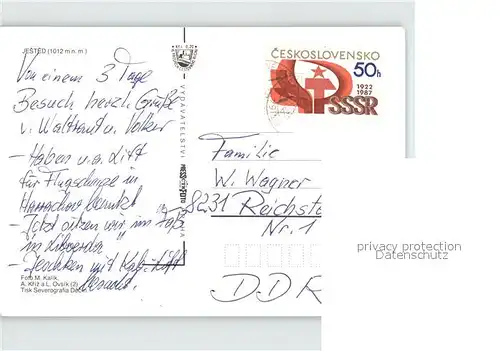 JEŠTĚD (1012 m n. m.)
Von einem 3 Tage
Besuch herzl. Grüße
v. Waltraut u. Volker
- Haben u. a. Lift
für Flugschanze in
Harrachov benutzt
- Jetzt sitzen wir im "Faß"
in Liberec
- Jeschken mit Kab. Lift
besucht.
Foto M. Kalík,
A. Kříž a L. Ovsík (2)
Tisk Severografia Děčín
VYDAVATELSTVÍ
PRESSFOTO
ČESKOSLOVENSKO
50h
1922
1987
SSSR
Familie
W. Wagner
8231 Reichst
Nr. 1
DDR
privacy protection
Datenschutz